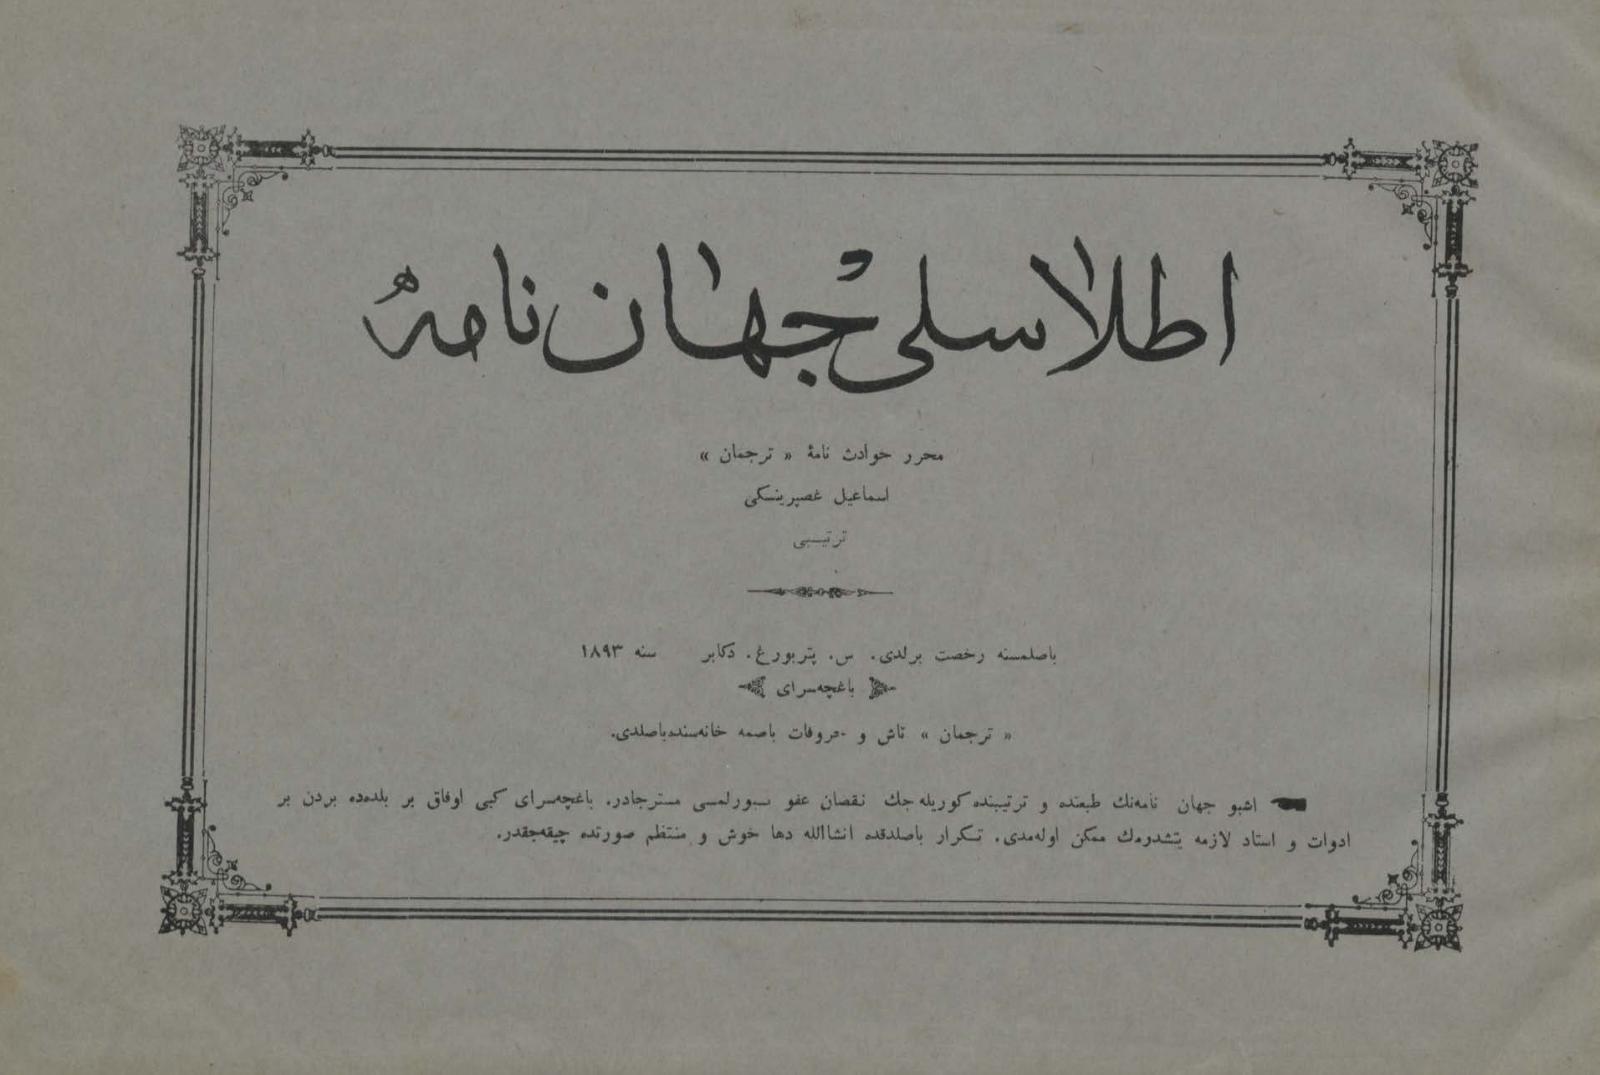 اطلاسلی جهان نامهٔ
محرر حوادث نامهٔ « ترجمان »
اسماعیل غصپرینسکی
ترتیبی
باصلمسنه رخصت برلدی. س. پتربورغ. دکابر سنه ۱۸۹۳
باغچه‌سرای
« ترجمان » تاش و حروفات باصمه خانه‌سنده‌باصلدی.
اشبو جهان نامه‌نك طبعنده و ترتیبنده‌کوریله‌جك نقصان عفو بیورلمسی مسترجادر. باغچه‌سرای کبی اوفاق بر بلده‌ده بردن بر
ادوات و استاد لازمه یتشدرمك ممکن اوله‌مدی. تکرار باصلدقده انشاالله دها خوش و منتظم صورتده چیقه‌جقدر.